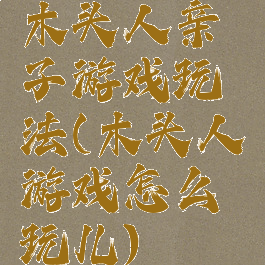 木头人亲
子游戏玩
法(木头人
游戏怎么
玩儿)